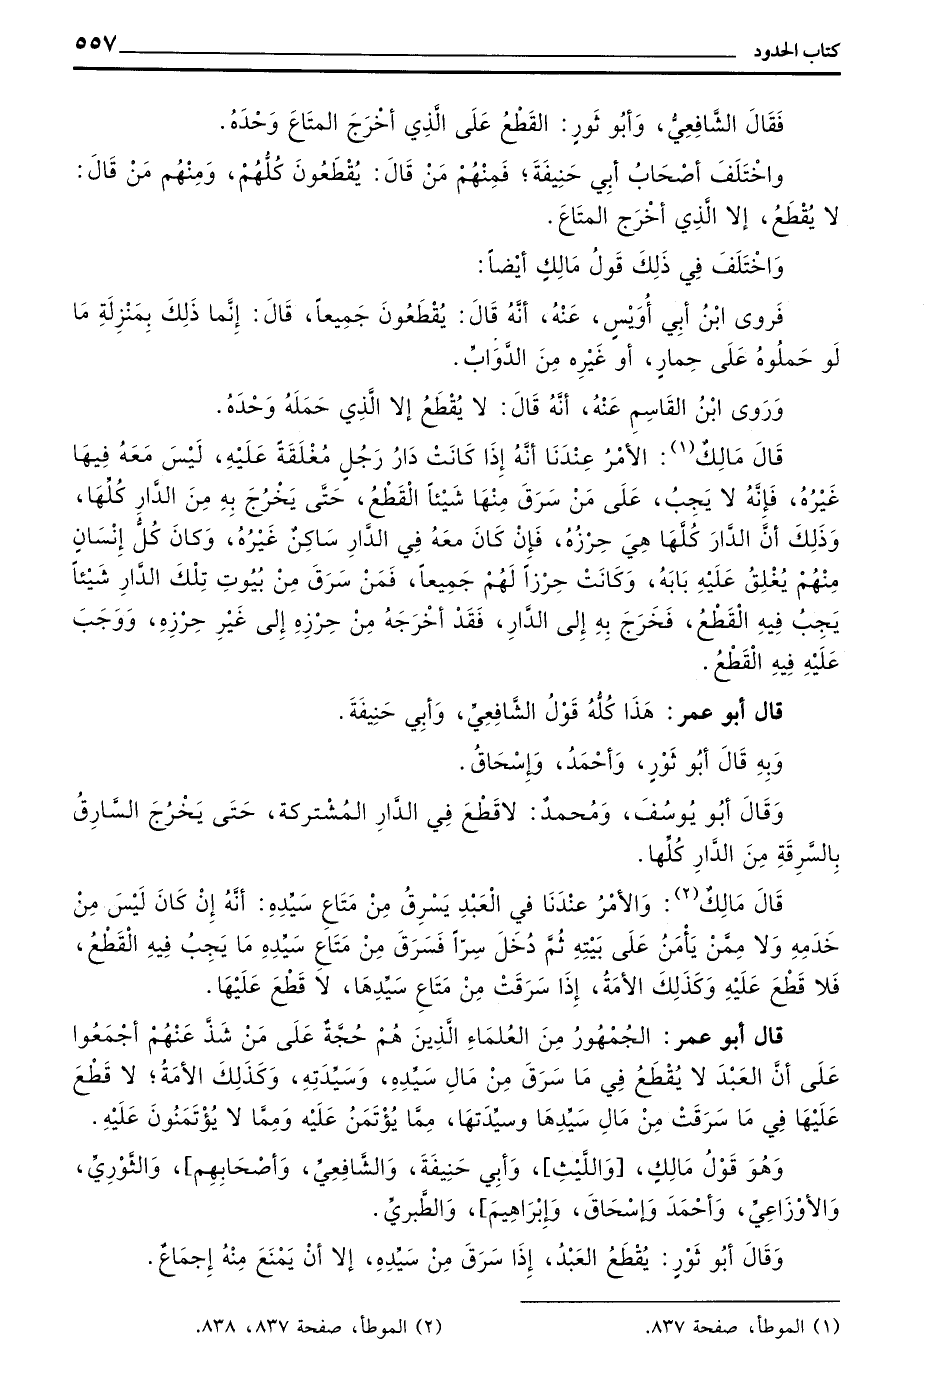 كتاب الحدود ٥٥٧
فَقَالَ الشَّافِعِيُّ، وَأَبُو ثَورٍ: القَطْعُ عَلَى الَّذِي أخْرَجَ المتَاعَ وَحْدَهُ.
واخْتَلَفَ أصْحَابُ أبِي حَنِيفَةَ؛ فَمِنْهُمْ مَنْ قَالَ: يُقْطَعُونَ كُلُّهُمْ، وَمِنْهُم مَنْ قَالَ:
لا يُقْطَعُ، إلا الَّذِي أخْرَج المتَاعَ.
وَاخْتَلَفَ فِي ذَلِكَ قَولُ مَالِكٍ أيْضاً:
فَروى ابْنُ أبي أُوَيْسٍ، عَنْهُ، أنَّهُ قَالَ: يُقْطَعُونَ جَمِيعاً، قَالَ: إنَّما ذَلِكَ بِمَنْزِلَةِ مَا
لَو حَملُوهُ عَلَى حِمارٍ، أو غَيْرِه مِنَ الدَّوَابِّ.
وَرَوى ابْنُ القَاسِمِ عَنْهُ، أنَّهُ قَالَ: لا يُقْطَعُ إلا الَّذِي حَمَلَهُ وَحْدَهُ.
قَالَ مَالِكٌ(١): الأمْرُ عِنْدَنَا أنَّهُ إذَا كَانَتْ دَارُ رَجُلٍ مُغْلَقَةً عَلَيْهِ، لَيْسَ مَعَهُ فِيهَا
غَيْرُهُ، فَإنَّهُ لا يَجِبُ، عَلَى مَنْ سَرَقَ مِنْهَا شَيْئاً الْقَطْعُ، حَتَّى يَخْرُجَ بِهِ مِنَ الدَّارِ كُلِّهَا،
وَذَلِكَ أنَّ الدَّارَ كُلَّهَا هِيَ حِرْزُهُ، فَإنْ كَانَ معَهُ فِي الدَّارِ سَاكِنٌ غَيْرُهُ، وَكانَ كُلُّ إنْسَانٍ
مِنْهُمْ يُغْلِقُ عَلَيْهِ بَابَهُ، وَكَانَتْ حِرْزاً لَهُمْ جَمِيعاً، فَمَنْ سَرَقَ مِنْ بُيُوتِ تِلْكَ الدَّارِ شَيْئاً
يَجِبُ فِيهِ الْقَطْعُ، فَخَرَجَ بِهِ إلى الدَّارِ، فَقَدْ أخْرَجَهُ مِنْ حِرْزِهِ إلى غَيْرِ حِرْزِهِ، وَوَجَبَ
عَلَيْهِ فِيهِ الْقَطْعُ.
قال أبو عمر: هَذَا كُلُّهُ قَوْلُ الشَّافِعِيِّ، وَأبِي حَنِيفَةَ.
وَبِهِ قَالَ أبُو ثَوْرٍ، وَأحْمَدُ، وَإسْحَاقُ.
وَقَالَ أبُو يُوسُفَ، وَمُحمدٌ: لاقَطْعَ فِي الدَّارِ المُشْتركة، حَتَى يَخْرُجَ السَّارِقُ
بِالسَّرِقَةِ مِنَ الدَّارِ كُلِّها.
قَالَ مَالِكٌ(٢): وَالأمْرُ عنْدَنَا في الْعَبْدِ يَسْرِقُ مِنْ مَتَاعِ سَيِّدِهِ: أنَّهُ إنْ كَانَ لَيْسَ مِنْ
خَدَمِهِ وَلا مِمَّنْ يَأْمَنُ عَلَى بَيْتِهِ ثُمَّ دُخَلَ سِرّاً فَسَرَقَ مِنْ مَتَاعِ سَيِّدِهِ مَا يَجِبُ فِيهِ الْقَطْعُ،
فَلا قَطْعَ عَلَيْهِ وَكَذَلِكَ الأمَةُ، إذَا سَرَقَتْ مِنْ مَتَاعِ سَيِّدِهَا، لاَ قَطْعَ عَلَيْهَا.
قال أبو عمر: الجُمْهُورُ مِنَ العُلَمَاءِ الَّذِينَ هُمْ حُجَّةٌ عَلَى مَنْ شَذَّ عَنْهُمْ أجْمَعُوا
عَلَى أنَّ العَبْدَ لا يُقْطَعُ فِي مَا سَرَقَ مِنْ مَالِ سَيِّدِهِ، وَسَيِّدَتِهِ، وَكَذَلِكَ الأمَةُ؛ لا قَطْعَ
عَلَيْهَا فِي مَا سَرَقَتْ مِنْ مَالِ سَيِّدِهَا وسيِّدَتهَا، مِمَّا يُؤْتَمَنُ عَلَيْه وَمِمَّا لا يُؤْتَمَنُونَ عَلَيْهِ.
وَهُوَ قَوْلُ مَالِكٍ، [وَاللَّيْثِ]، وَأبِي حَنِيفَةَ، وَالشَّافِعِيِّ، وَأصْحَابِهِم]، وَالثَّوْرِيِّ،
وَالأوْزَاعِيِّ، وَأحْمَدَ وَإسْحَاقَ، وَإبْرَاهِيمَ]، وَالطَّبريِّ.
وَقَالَ أبُو ثَوْرٍ: يُقْطَعُ العَبْدُ، إذَا سَرَقَ مِنْ سَيِّدِهِ، إلا أنْ يَمْنَعَ مِنْهُ إجماعٌ.
(١) الموطأ، صفحة ٨٣٧. (٢) الموطأ، صفحة ٨٣٧، ٨٣٨.